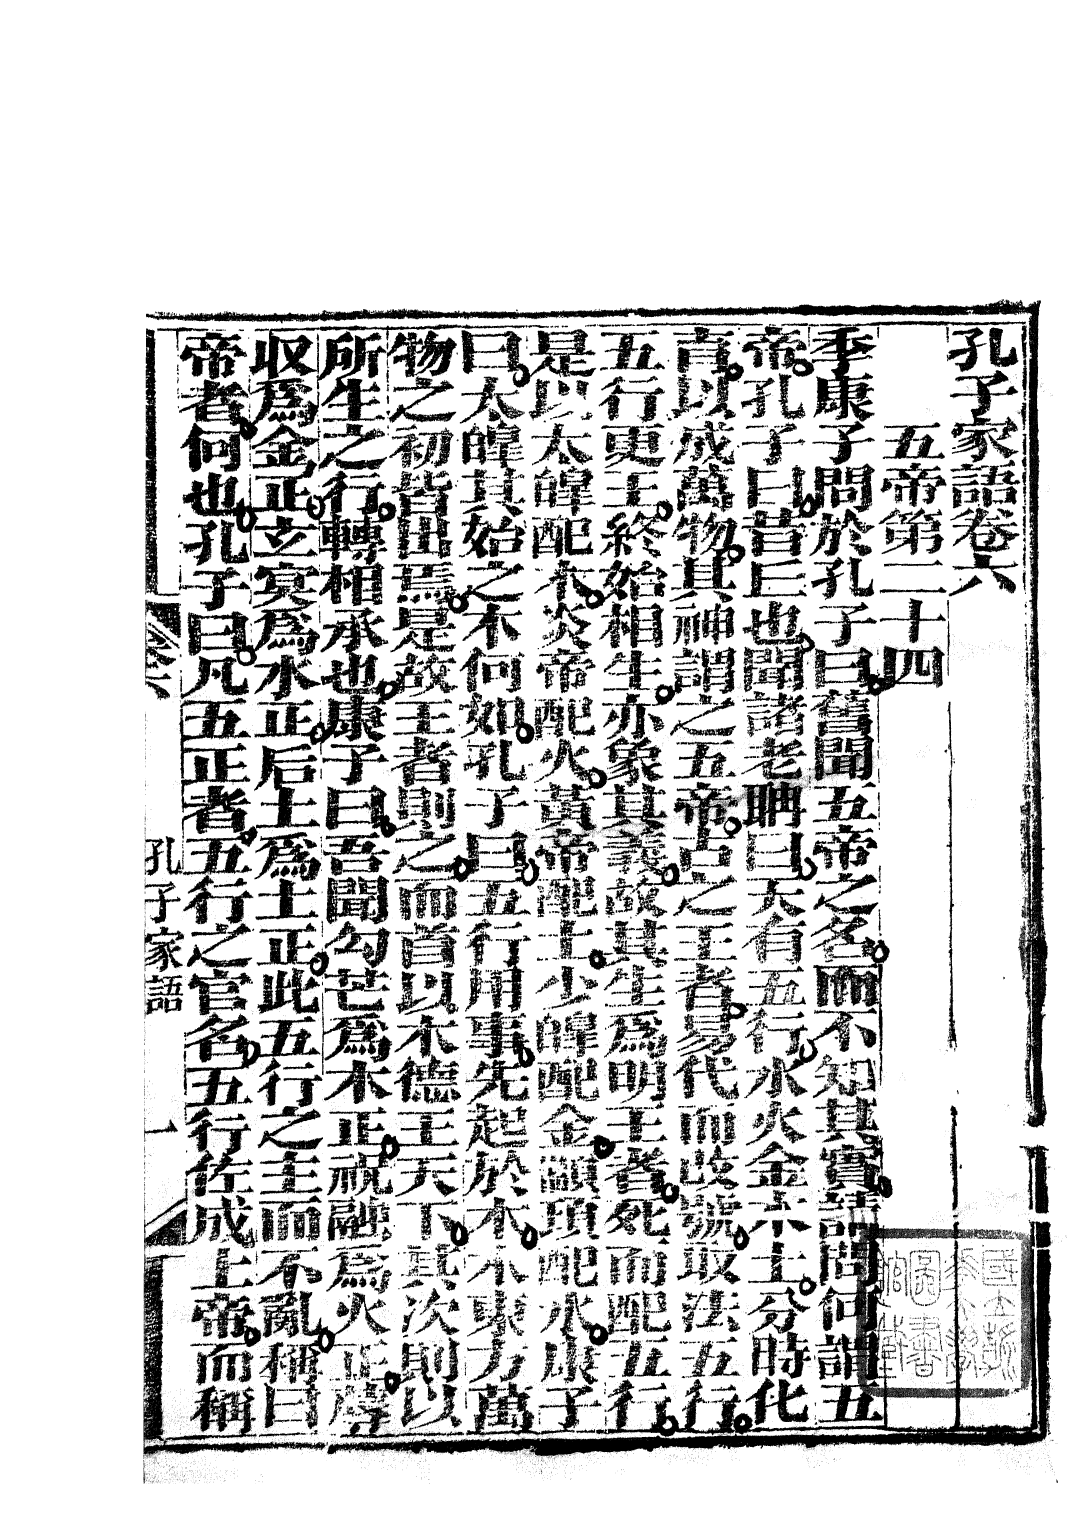 孔子家語卷六
五帝第二十四
季康子問於孔子曰舊聞五帝之名而不知其實請問何謂五
帝孔子曰昔丘也聞諸老聃曰天有五行水火金木土分時化
育以成萬物其神謂之五帝古之王者易代而改號取法五行
五行更王終始相生亦象其義故其生爲明王者死而配五行
是以太皥配木炎帝配火黃帝配土少皥配金顓頊配水康子
曰太皥其始之木何如孔子曰五行用事先起於木木東方萬
物之初皆出焉是故王者則之而首以木德王天下其次則以
所生之行轉相承也康子曰吾聞勾芒爲木正祝融爲火正蓐
收爲金正玄冥爲水正后土爲土正此五行之主而不亂稱曰
帝者何也孔子曰凡五正者五行之官名五行佐成上帝而稱
卷六
孔子家語
一